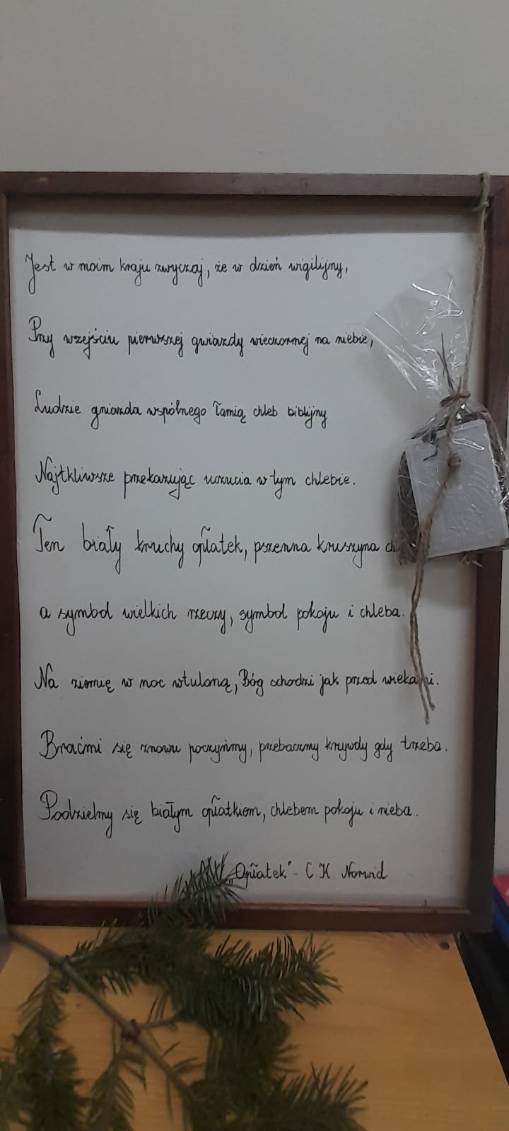 Jest w moim kraju zwyczaj, że w dzień wigilijny,
Przy wzejściu pierwszej gwiazdy wieczornej na niebie,
Ludzie gniazda wspólnego łamią chleb biblijny
Najtkliwsze przekazując uczucia w tym chlebie.
Ten biały kruchy opłatek, pszenna kruszyna
a symbol wielkich rzeczy, symbol pokoju i chleba.
Na ziemię w noc wtuloną, Bóg schodzi jak przed wiekami.
Braćmi się znowu poczyńmy, przebaczmy krzywdy gdy trzeba.
Podzielmy się białym opłatkiem, chlebem pokoju i nieba.
"Opłatek" - C K Norwid